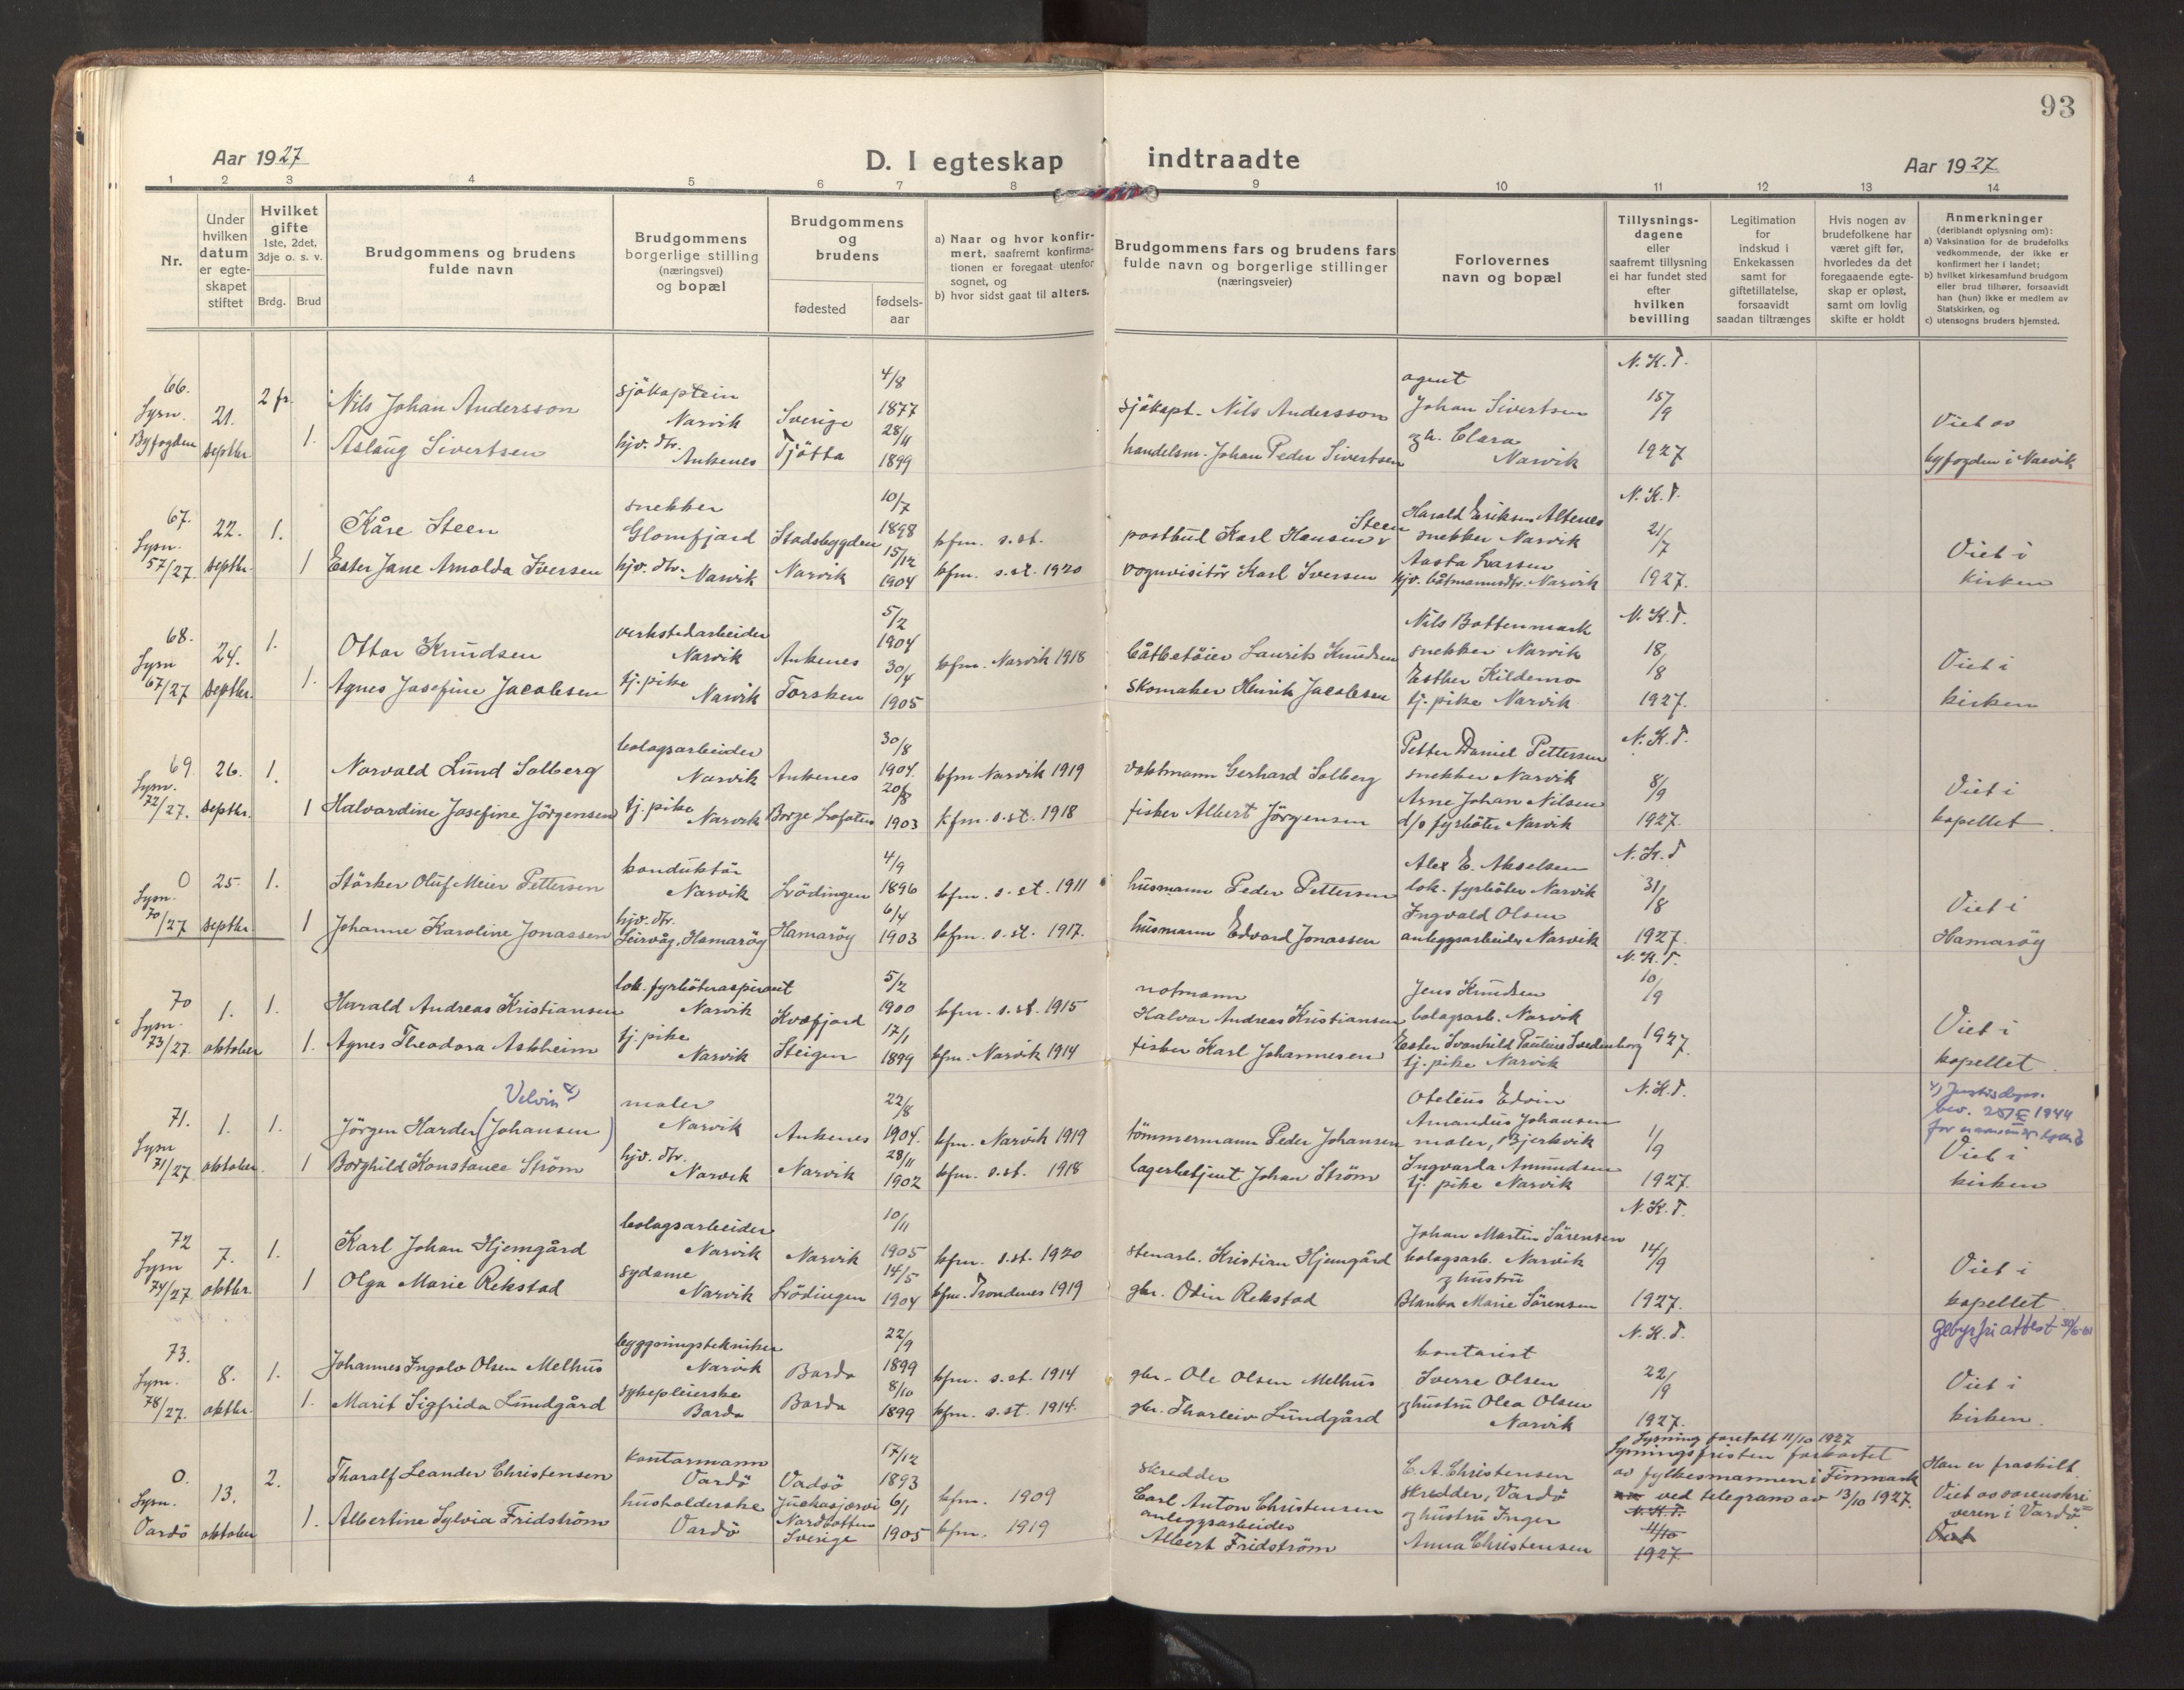 93
Aar 1927
D. I egteskap indtraadte
Aar 1927
1 2 3 4 5 6 7 8 9 10 11 12 13 14
Nr.
Under hvilken datum er egteskapet stiftet
Hvilket gifte 1ste, 2det, 3dje o. s. v.
Brdg. Brud
Brudgommens og brudens fulde navn
Brudgommens borgerlige stilling (næringsvei) og bopæl
Brudgommens og brudens
fødested
fødselsaar
a) Naar og hvor konfirmert, saafremt konfirmationen er foregaat utenfor sognet, og
b) hvor sidst gaat til alters.
Brudgommens fars og brudens fars fulde navn og borgerlige stillinger (næringsveier)
Forlovernes navn og bopæl
Tillysningsdagene eller saafremt tillysning ei har fundet sted efter hvilken bevilling
Legitimation for indskud i Enkekassen samt for giftetillatelse, forsaavidt saadan tiltrænges
Hvis nogen av brudefolkene har været gift før, hvorledes da det foregaaende egteskap er opløst, samt om lovlig skifte er holdt
Anmerkninger (deriblandt oplysning om):
a) Vaksination for de brudefolks vedkommende, der ikke er konfirmert her i landet;
b) hvilket kirkesamfund brudgom eller brud tilhører, forsaavidt han (hun) ikke er medlem av Statskirken, og
c) utensogns bruders hjemsted.
66. Lysn. Byfogden 21. septbr. 2 fr. 1.
Nils Johan Andersson sjökaptein Narvik Sverige 4/8 1877
Aslaug Sivertsen hjv. dtr. Ankenes Tjötta 28/11 1899
sjökapt. Nils Andersson
handelsm. Johan Peder Sivertsen
agent Johan Sivertsen
og h. Clara Narvik
N. K. T. 15/9 1927
Viet av byfogden i Narvik
67. Lysn. 57/27. 22. septbr. 1. 1
Kåre Steen snekker Glomfjord Stadsbygden 10/7 1898 kfm. s. st.
Ester Jane Arnolda Iversen hjv. dtr. Narvik Narvik 15/12 1904 kfm. s. st. 1920
postbud Karl Hansen Steen
vognvisitör Karl Iversen
Harald Eriksen Altenes snekker Narvik
Aasta Larssen hjv. båtmannsdtr. Narvik
N. K. T. 21/7 1927.
Viet i kirken
68. Lysn 67/27 24. septbr. 1. 1.
Ottar Knudsen verkstedarbeider Narvik Ankenes 5/2 1904 kfm. Narvik 1918
Agnes Josefine Jacobsen tj. pike Narvik Torsken 30/4 1905
båtbetöier Laurits Knudsen
skomaker Henrik Jacobsen
Nils Bottenmark snekker Narvik
Esther Kildemo tj. pike Narvik
N. K. T. 18/8 1927.
Viet i kirken
69 Lysn. 72/27. 26. septbr. 1. 1
Norvald Lund Solberg bolagsarbeider Narvik Ankenes 30/8 1904. kfm Narvik 1919
Halvardine Josefine Jörgensen tj. pike Narvik Borge Lofoten 20/8 1903 kfm. s. st. 1918
vaktmann Gerhard Solberg
fisker Albert Jörgensen
Petter Daniel Pettersen snekker Narvik
Arne Johan Nilsen d/s fyrböter Narvik
N. K. T. 8/9 1927.
Viet i kapellet.
0 Lysn. 70/27 25. septbr. 1. 1
Störker Oluf Meier Pettersen konduktör Narvik Lödingen 4/9 1896 kfm. s. st. 1911
Johanne Karoline Jonassen hjv. dtr. Leirvåg, Hamaröy Hamaröy 6/4 1903 kfm. s. st. 1917.
husmann Peder Pettersen
husmann Edvard Jonassen
Alex E. Akselsen lok. fyrböter Narvik
Ingvald Olsen anleggsarbeider Narvik
N. K. T 31/8 1927.
Viet i Hamaröy
70 Lysn. 73/27. 1. oktober 1. 1.
Harald Andreas Kristiansen lok. fyrböteraspirant Narvik Kvæfjord 5/2 1900 kfm. s. st. 1915
Agnes Theodora Askheim tj. pike Narvik Steigen 17/1 1899 kfm. Narvik 1914
notmann Halvor Andreas Kristiansen
fisker Karl Johannesen
Jens Knudsen bolagsarb. Narvik
Ester Svanhild Pauline Svedenborg tj. pike Narvik
N. K. T. 10/9 1927.
Viet i kapellet.
71. Lysn 71/27 1. oktober. 1. 1
Velvin x)
Jörgen Harder (Johansen) maler Narvik Ankenes 22/8 1904. kfm. Narvik 1919
Borghild Konstance Ström hjv. dtr. Narvik Narvik 28/11 1902 kfm. s. st. 1918
tömmermann Peder Johansen
lagerbetjent Johan Ström
Otelius Edvin Amandus Johansen maler, Bjerkvik
Ingvarda Amundsen tj. pike Narvik
N. K. T. 1/9 1927.
x) Justisdepr. bev. 1944 for
Viet i kirken
72 Lysn 74/27 7. oktbr. 1. 1
Karl Johan Hjemgård bolagsarbeider Narvik Narvik 10/11 1905 kfm. s. st. 1920
Olga Marie Rekstad sydame Narvik Lödingen 14/5 1904 kfm. Trondenes 1919
stenarb. Kristian Hjemgård
gbr. Odin Rekstad
Johan Martin Sörensen bolagsarb. Narvik
og hustru Blanka Marie Sörensen
N. K. T. 14/9 1927.
Viet i kapellet.
73. Lysn. 78/27. 8. oktbr. 1. 1.
Johannes Ingolv Olsen Melhus byggningstekniker Narvik Bardo 22/9 1899 kfm. s. st. 1914
Marit Sigfrida Lundgård sykepleierske Bardo Bardo 8/10 1899 kfm. s. st. 1914.
gbr. Ole Olsen Melhus
gbr. Tharleiv Lundgård
kontorist Sverre Olsen
og hustru Olea Olsen Narvik
N. K. T. 22/9 1927.
Gebyrfri attest
Viet i kirken.
0. Lysn. Vardö 13. oktober 2. 1.
Tharalf Leander Christensen kontormann Vardö Vadsö 17/12 1893 kfm. 1909
Albertine Sylvia Fridström husholderske Vardö Juckasjærvi Nordbotten Sverige 6/1 1905 kfm. 1919
skredder Carl Anton Christensen
anleggsarbeider Albert Fridström
C. A. Christensen skredder, Vardö
og hustru Inger Anna Christensen
Lysning foretatt 11/10 1927
Lysningsfristen forkortet av fylkesmannen i Finmark ved telegram av 13/10 1927.
N. K. T. 11/10 1927
Han er fraskilt.
Viet av sorenskriveren i Vardö
Viet